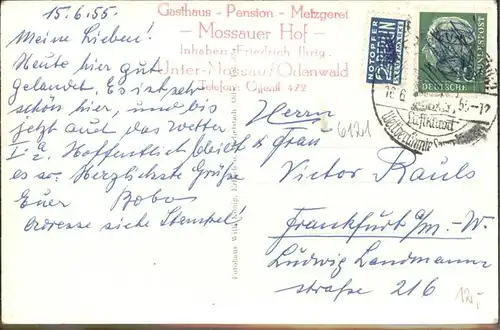 15.6.55.
Gasthaus - Pension - Metzgerei
- Mossauer Hof -
Inhaber: Friedrich Ihrig
Unter-Mossau/Odenwald
Telefon: Öffentl. 422
Meine Lieben!
Heute hier gut
gelandet. Es ist sehr
schön hier, und bis
jetzt auch das Wetter
I a. Hoffentlich bleibt
es so. Herzlichste Grüße
Euer Bobo
Adresse siehe Stempel!
NOTOPFER
2 BERLIN
STEUERMARKE
DEUTSCHE
Luftkurort
6121
Herrn
u. Frau
Victor Rauls
Frankfurt a/M.-W.
Ludwig Landmann
straße 216
12,-